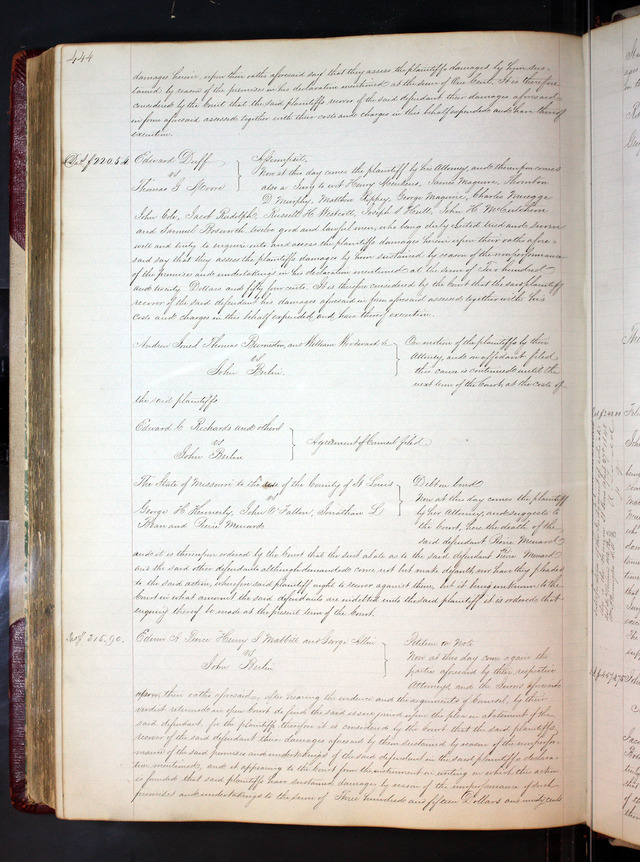 444
damages herein upon their oaths aforesaid say that they assess the plaintiffs damages by him sus-
tained by reason of the premises in his declaration mentioned at the sum of One Cent. It is therefore
considered by the Court that the said plaintiffs recover of the said defendant their damages aforesaid
in form aforesaid assessed together with their costs and charges in this behalf expended and have thereof
execution.
Edward Duff
vs
Thomas Moore
Assumpsit.
Now at this day comes the plaintiff by his Attorney, and thereupon comes
also a Jury to wit Henry James Maguire, Thornton
D. Murphy, Matthew George Maguire, Charles
John Cole, Jacob Rudolph, Russell H. Westcott, Joseph S Hull, John H. McCutchen
and Samuel Bosworth twelve good and lawful men, who being duly elected tried and sworn
well and truly to enquire into and assess the plaintiffs damages herein upon their oaths afore-
said say that they assess the plaintiffs damages by him sustained by reason of the nonperformance
of the promises and undertakings in his declaration mentioned at the sum of Two hundred
and twenty Dollars and fifty four cents. It is therefore considered by the Court that the said plaintiff
recover of the said defendant his damages aforesaid in form aforesaid assessed together with his
costs and charges in this behalf expended, and have thereof execution.
Andrew Thomas and William Woodward
vs
John Berlin.
On motion of the plaintiffs by their
Attorney, and on affidavit filed
this cause is continued until the
next term of the Court, at the costs of
the said plaintiffs
Edward C Richards and others
vs
John Berlin
Agreement of Counsel filed
The State of Missouri to the use of the County of St Louis
vs
George H Kennerly, John O'Fallon, Jonathan L
Bean and Pierre Menard
Debt on bond
Now at this day comes the plaintiff
by her Attorney, and suggests to
the Court, here the death of the
said defendant Pierre Menard
and it is thereupon ordered by the Court that the suit abate as to the said defendant Pierre Menard
and the said other defendants although demanded come not but make default, nor have they pleaded
to the said action, wherefore said plaintiff ought to recover against them, but it being unknown to the
Court in what amount the said defendants are indebted unto the said plaintiff it is ordered that
enquiry thereof be made at the present term of the Court.
315.90.
Edwin A Pierce Henry S Mabbitt and George Allen
vs
John Berlin
Petition on Note
Now at this day come again the
parties aforesaid by their respective
Attorneys and the Jurors aforesaid
upon their oaths aforesaid, after hearing the evidence and the arguments of Counsel, by their
verdict returned in open Court do find the said issue joined upon the plea in abatement of the
said defendant, for the plaintiffs therefore it is considered by the Court that the said plaintiffs
recover of the said defendant their damages aforesaid by them sustained by reason of the nonperfor-
mance of the said promises and undertakings of the said defendant in the said plaintiffs declara-
tion mentioned, and it appearing to the Court from the instrument in writing on which the action
is founded that said plaintiffs have sustained damages by reason of the nonperformance of such
promises and undertakings to the sum of Three hundred and fifteen Dollars and ninety cents